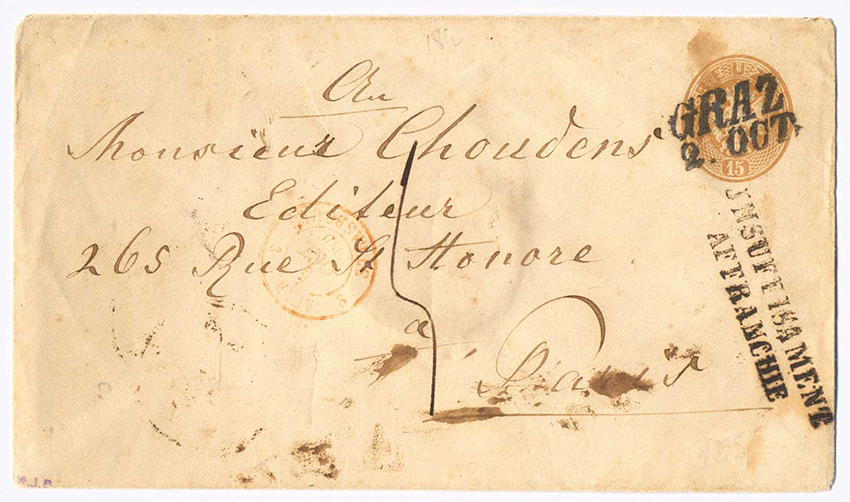 An
Monsieur Choudens
Editeur
265 Rue St Honore
a
Paris
GRAZ
2. OCT.
15
INSUFFISAMENT
AFFRANCHIE